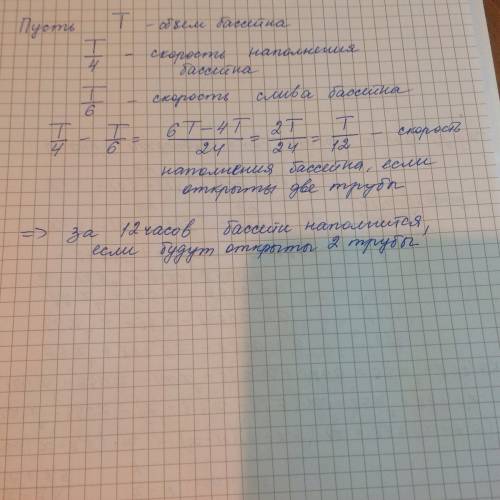 Пусть T - объем бассейна
T/4 - скорость наполнения
бассейна
T/6 - скорость слива бассейна
T/4 - T/6 = (6T-4T)/24 = 2T/24 = T/12 - скорость
наполнения бассейна, если
открыты две трубы
=> за 12 часов бассейн наполнится,
если будут открыты 2 трубы